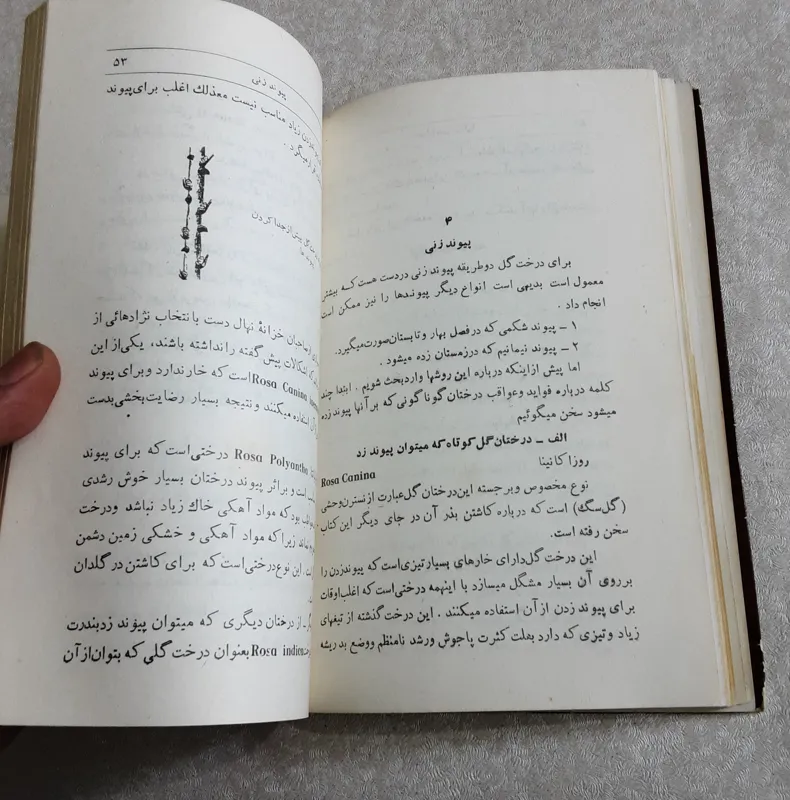 ۴
پیوند زنی
برای درخت گل دوطریقه پیوند زنی دردست هست که بیشتر
معمول است بدیهی است انواع دیگر پیوندها را نیز ممکن است
انجام داد .
۱ - پیوند شکمی که درفصل بهار وتابستان‌صورت‌میگیرد.
۲ - پیوند نیمانیم که درزمستان زده میشود .
اما پیش ازاینکه درباره این روشها واردبحث شویم . ابتدا چند
کلمه درباره فواید وعواقب درختان گوناگونی که برآنها پیوند زده
میشود سخن میگوئیم
الف - درختان‌گل‌کوتاه‌که میتوان پیوند زد
روزا کانینا
Rosa Canina
نوع مخصوص وبرجسته این‌درختان گل‌عبارت‌ازنسترن‌وحشی
(گل‌سگ) است که درباره کاشتن بذر آن در جای دیگر این کتاب
سخن رفته است.
این درخت گل‌دارای خارهای بسیارتیزی‌است که پیوندزدن را
برروی آن بسیار مشگل میسازد با اینهمه درختی‌است که اغلب‌اوقات
برای پیوند زدن ازآن استفاده میکنند . این درخت‌گذشته از تیغهای
زیاد وتیزی که دارد بعلت کثرت پاجوش ورشد نامنظم ووضع بد ریشه
۵۳
پیوند زنی
زدن زیاد مناسب نیست معذلك اغلب برای‌پیوند
میگیرد .
پیش ازجدا کردن
صاحبان خزانهٔ نهال دست با انتخاب نژادهائی از
که اشکالات پیش گفته را نداشته باشند، یکی‌از این
Rosa Canina است که خارندارد و برای پیوند
استفاده میکنند ونتیجه بسیار رضایت‌بخشی‌بدست
Rosa Polyantha درختی‌است که برای پیوند
است و براثر پیوند درختان بسیار خوش رشدی
بود که مواد آهکی خاك زیاد نباشد ودرخت
زیرا که مواد آهکی و خشکی زمین دشمن
این نوع‌درختی‌است که برای کاشتن در گلدان
از درختان دیگری که میتوان پیوند زدبندرت
Rosa indica بعنوان درخت گلی که بتوان‌ازآن